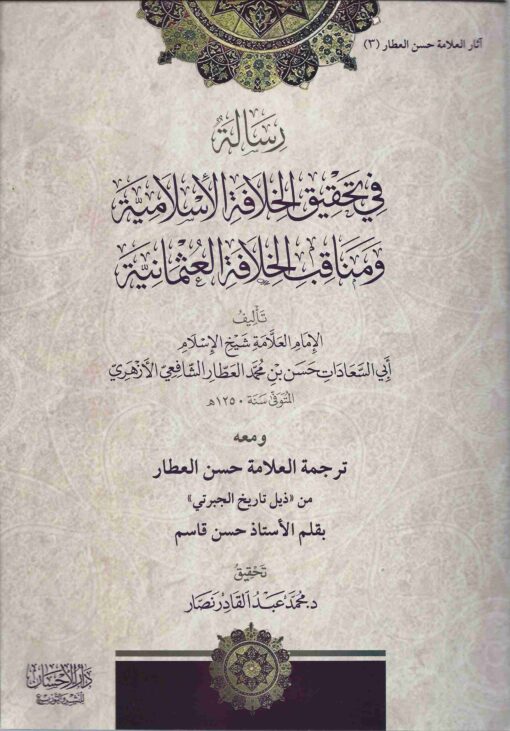 آثار العلامة حسن العطار (٣)
رِسَالَةٌ
فِي تَحْقِيقِ الْخِلَافَةِ الْإِسْلَامِيَّةِ
وَمَنَاقِبِ الْخِلَافَةِ الْعُثْمَانِيَّةِ
تَأْلِيفُ
الإِمَامِ العَلَّامَةِ شَيْخِ الإِسْلَامِ
أَبِي السَّعَادَاتِ حَسَن بْنِ مُحَمَّد العَطَّارِ الشَّافِعِيِّ الأَزْهَرِيِّ
المُتَوَفَّى سَنَة ١٢٥٠هـ
ومعه
ترجمة العلامة حسن العطار
من «ذيل تاريخ الجبرتي»
بقلم الأستاذ حسن قاسم
تَحْقِيقُ
د. مُحَمَّد عَبْدُ القَادِر نَصَّار
دار الإحسان
للنشر والتوزيع